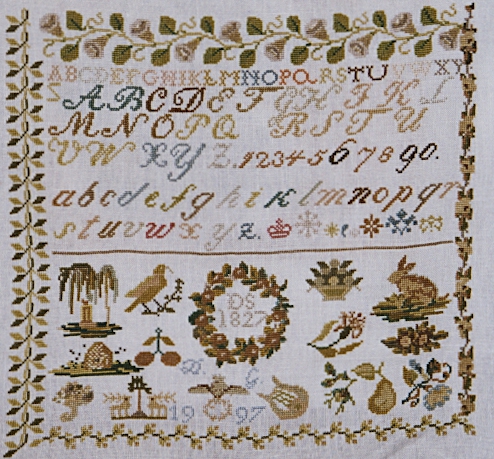 ABCDEFGHIKLMNOPQRSTUVWXY
Z ABCDEFGHIKL
MNOPQRSTU
VWXYZ.1234567890.
abcdefghiklmnopqr
stuvwxyz.
DS
1827
D. G
1997